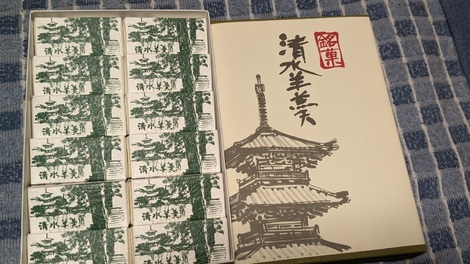 銘菓
清水羊羹
清水羊羹
清水羊羹
清水羊羹
清水羊羹
清水羊羹
清水羊羹
清水羊羹
清水羊羹
清水羊羹
清水羊羹
清水羊羹
清水羊羹